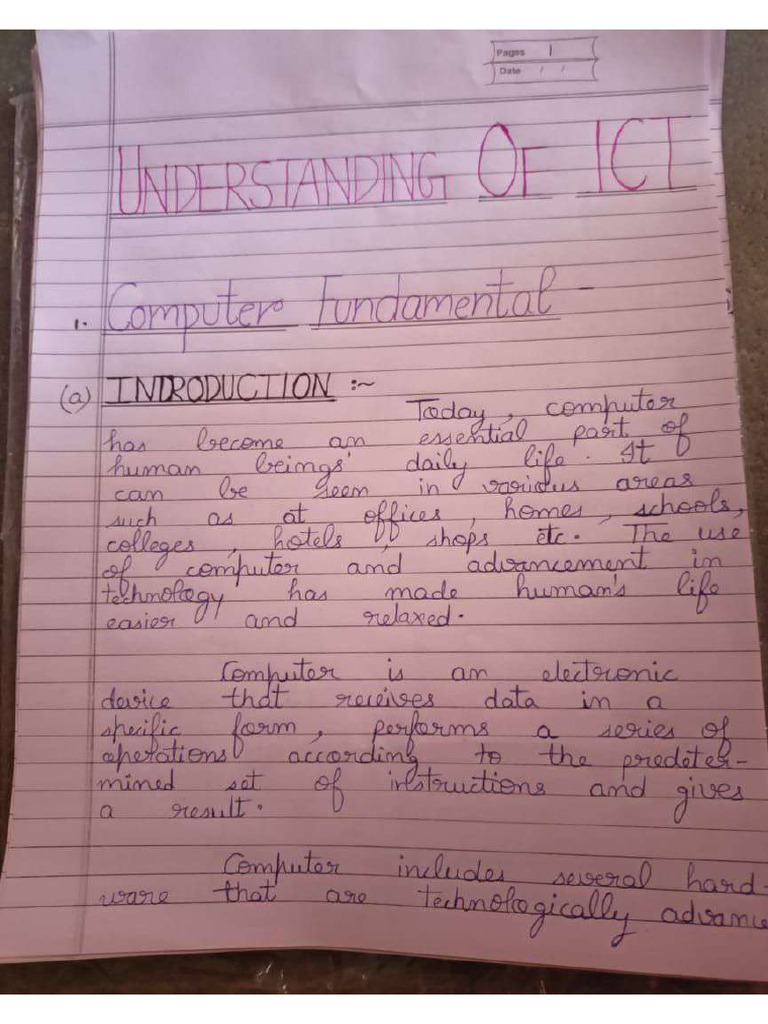 Pages 1
Date / /
UNDERSTANDING OF ICT
1. Computer Fundamental -
(a) INTRODUCTION :~
Today, computer
has become an essential part of
human beings' daily life. It
can be seen in various areas
such as at offices, homes, schools,
colleges, hotels, shops etc. The use
of computer and advancement in
technology has made human's life
easier and relaxed.
Computer is an electronic
device that receives data in a
specific form, performs a series of
operations according to the predeter-
mined set of instructions and gives
a result.
Computer includes several hard-
ware that are technologically advance